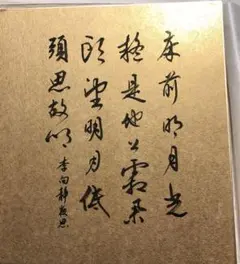 床前明月光
疑是地上霜舉
頭望明月低
頭思故鄉
李白靜夜思